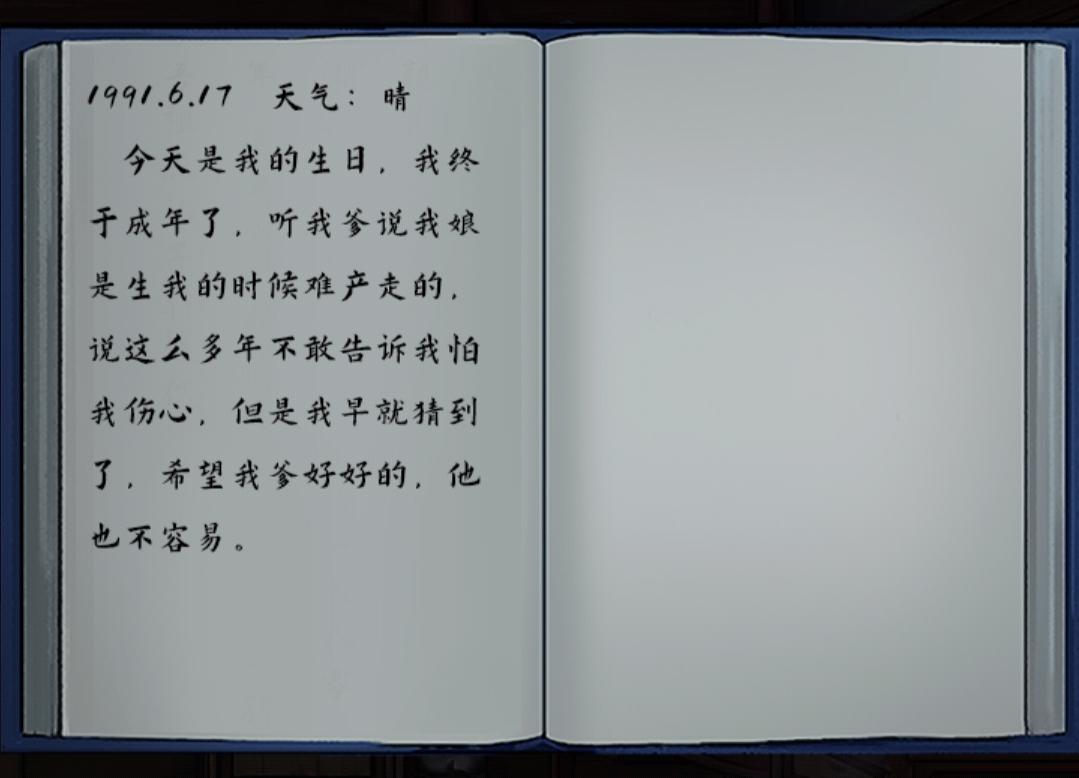 1991.6.17 天气：晴
今天是我的生日，我终
于成年了，听我爹说我娘
是生我的时候难产走的，
说这么多年不敢告诉我怕
我伤心，但是我早就猜到
了，希望我爹好好的，他
也不容易。